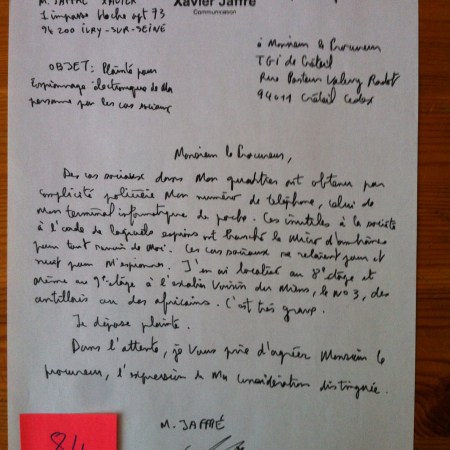 M. JAFFRÉ XAVIER
Xavier Jaffré
Communication
1 impasse hoche apt 73
94 200 IVRY-SUR-SEINE
à Monsieur le Procureur
TGI de Créteil
Rue Pasteur Valery Radot
94011 Créteil Cedex
OBJET: Plainte pour
Espionnage électronique de ma
personne par les cas sociaux
Monsieur le Procureur,
Des cas sociaux dans mon quartier ont obtenu par
complicité policière mon numéro de téléphone, celui de
mon terminal informatique de poche. Ces inutiles à la société
à l'aide de laquelle espions ont
pour tant de moi. Ces cas sociaux se relaient jour et
nuit pour m'espionner. J'en ai localisé au 8e étage et
même au 9e étage à l'escalier voisin du mien, le No 3, des
antillais ou des africains. C'est très grave.
Je dépose plainte.
Dans l'attente, je vous prie d'agréer Monsieur le
procureur, l'expression de ma considération distinguée.
M. JAFFRÉ
84